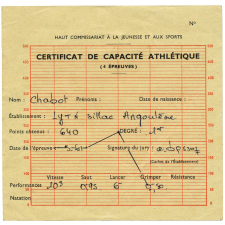 N°
HAUT COMMISSARIAT À LA JEUNESSE ET AUX SPORTS
CERTIFICAT DE CAPACITÉ ATHLÉTIQUE
(4 ÉPREUVES)
Nom : Chabot Prénoms : Date de naissance :
Établissement : Sillac Angoulême
Points obtenus : 640 DEGRÉ : 1er
Date de l'épreuve : Signature du jury :
(Cachet de l'Établissement)
Vitesse Saut Lancer Grimper Résistance
Performances
Natation